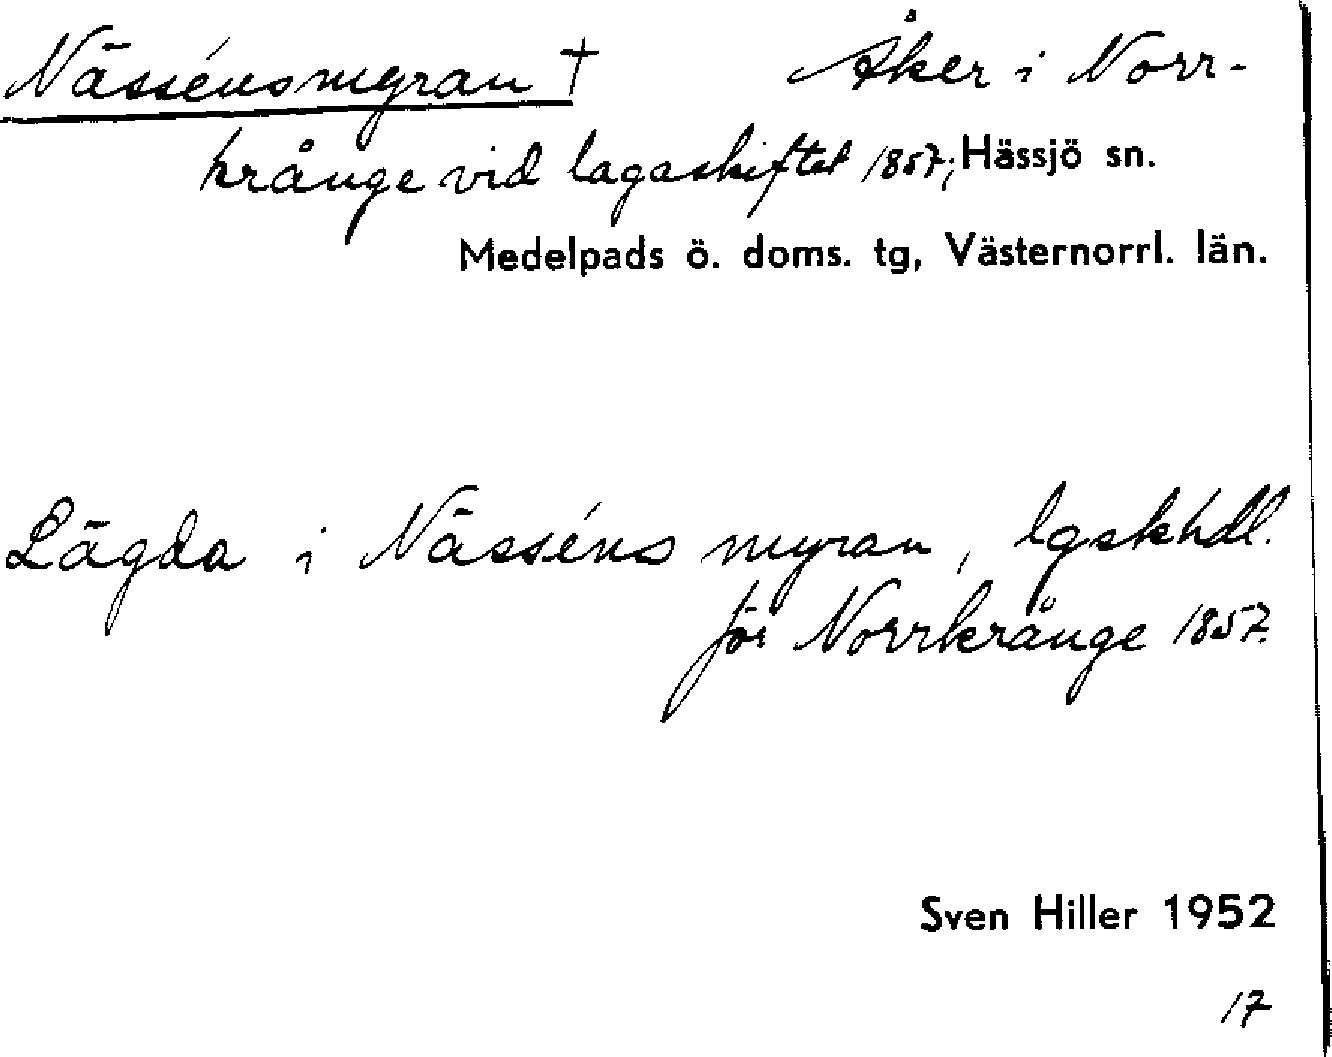 Nässénsmyran † Åker i Norr-
krånge vid lagaskiftet 1857; Hässjö sn.
Medelpads ö. doms. tg, Västernorrl. län.
Lägda i Nässéns myran, lgskhdl.
för Norrkrånge 1857.
Sven Hiller 1952
17